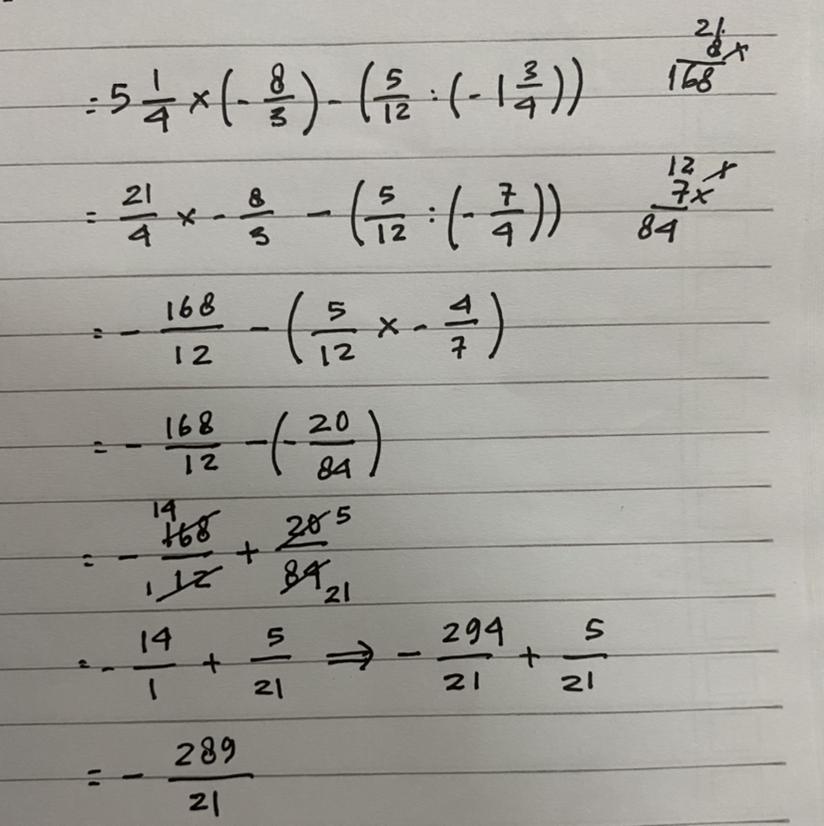 = 5 1/4 × (- 8/3) - (5/12 : (- 1 3/4))
21
8 ×
168
= 21/4 × - 8/3 - (5/12 : (- 7/4))
12 ×
7 ×
84
= - 168/12 - (5/12 × - 4/7)
= - 168/12 - (- 20/84)
= - 168/12 + 20/84
14 5
1 21
= - 14/1 + 5/21 ⇒ - 294/21 + 5/21
= - 289/21